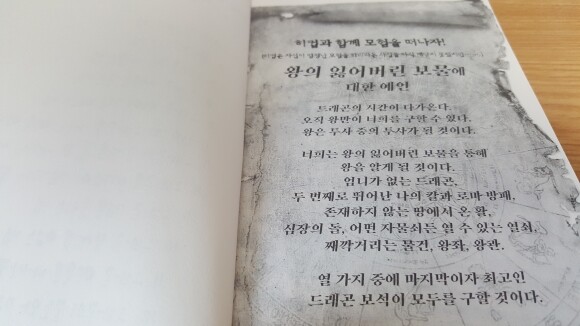 히컵과 함께 모험을 떠나자!
왕의 잃어버린 보물에
대한 예언
드래곤의 시간이 다가온다.
오직 왕만이 너희를 구할 수 있다.
왕은 투사 중의 투사가 될 것이다.
너희는 왕의 잃어버린 보물을 통해
왕을 알게 될 것이다.
엄니가 없는 드래곤,
두 번째로 뛰어난 나의 칼과 로마 방패,
존재하지 않는 땅에서 온 활,
심장의 돌, 어떤 자물쇠든 열 수 있는 열쇠,
째깍거리는 물건, 왕좌, 왕관.
열 가지 중에 마지막이자 최고인
드래곤 보석이 모두를 구할 것이다.